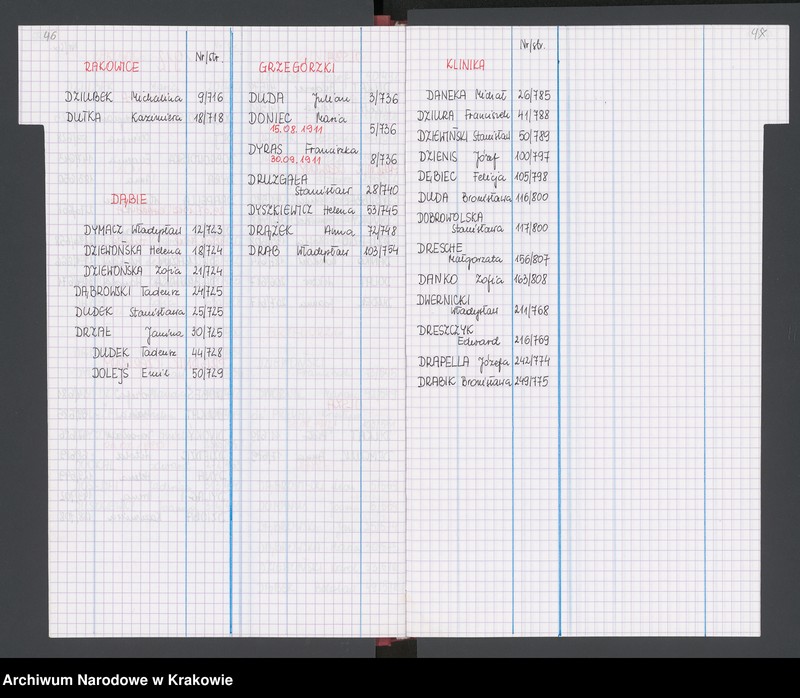 46
Nr/str.
RAKOWICE
DZIUBEK Michalina 9/716
DUTKA Kazimiera 18/718
DĄBIE
DYMACZ Władysław 12/723
DZIEWOŃSKA Helena 18/724
DZIEWOŃSKA Zofia 21/724
DĄBROWSKI Tadeusz 24/725
DUDEK Stanisława 25/725
DRZAŁ Janina 30/725
DUDEK Tadeusz 44/728
DOLEJŚ Emil 50/729
GRZEGÓRZKI
DUDA Julian 3/736
DONIEC Maria
15.08.1911 5/736
DYRAS Franciszka
30.09.1911 8/736
DRUZGAŁA
Stanisław 28/740
DYSZKIEWICZ Helena 53/745
DRĄŻEK Anna 72/748
DRAB Władysław 103/754
Nr/str.
KLINIKA
DANEKA Michał 26/785
DZIURA Franciszek 41/788
DZIEWIŃSKI Stanisław 50/789
DZIENIS Józef 100/797
DĘBIEC Felicja 105/798
DUDA Bronisława 116/800
DOBROWOLSKA
Stanisława 117/800
DRESCHE
Małgorzata 156/807
DANKO Zofia 163/808
DWERNICKI
Władysław 211/768
DRESZCZYK
Edward 216/769
DRAPELLA Józefa 242/774
DRABIK Bronisława 249/775
Archiwum Narodowe w Krakowie